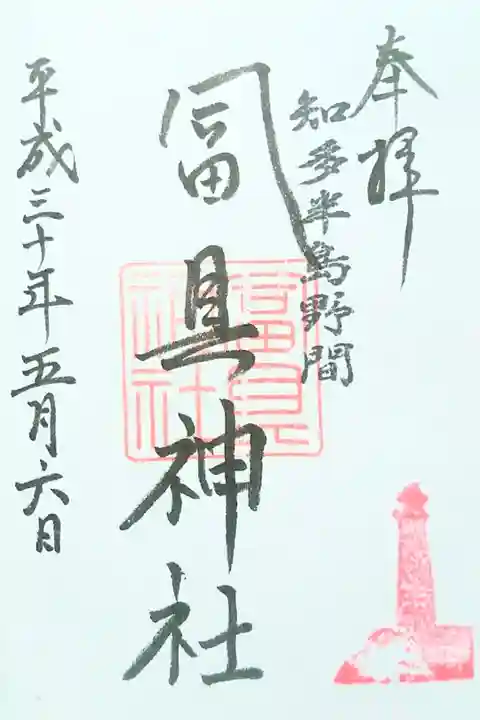 奉拝
知多半島野間
冨具神社
平成三十年五月六日
富具
神社